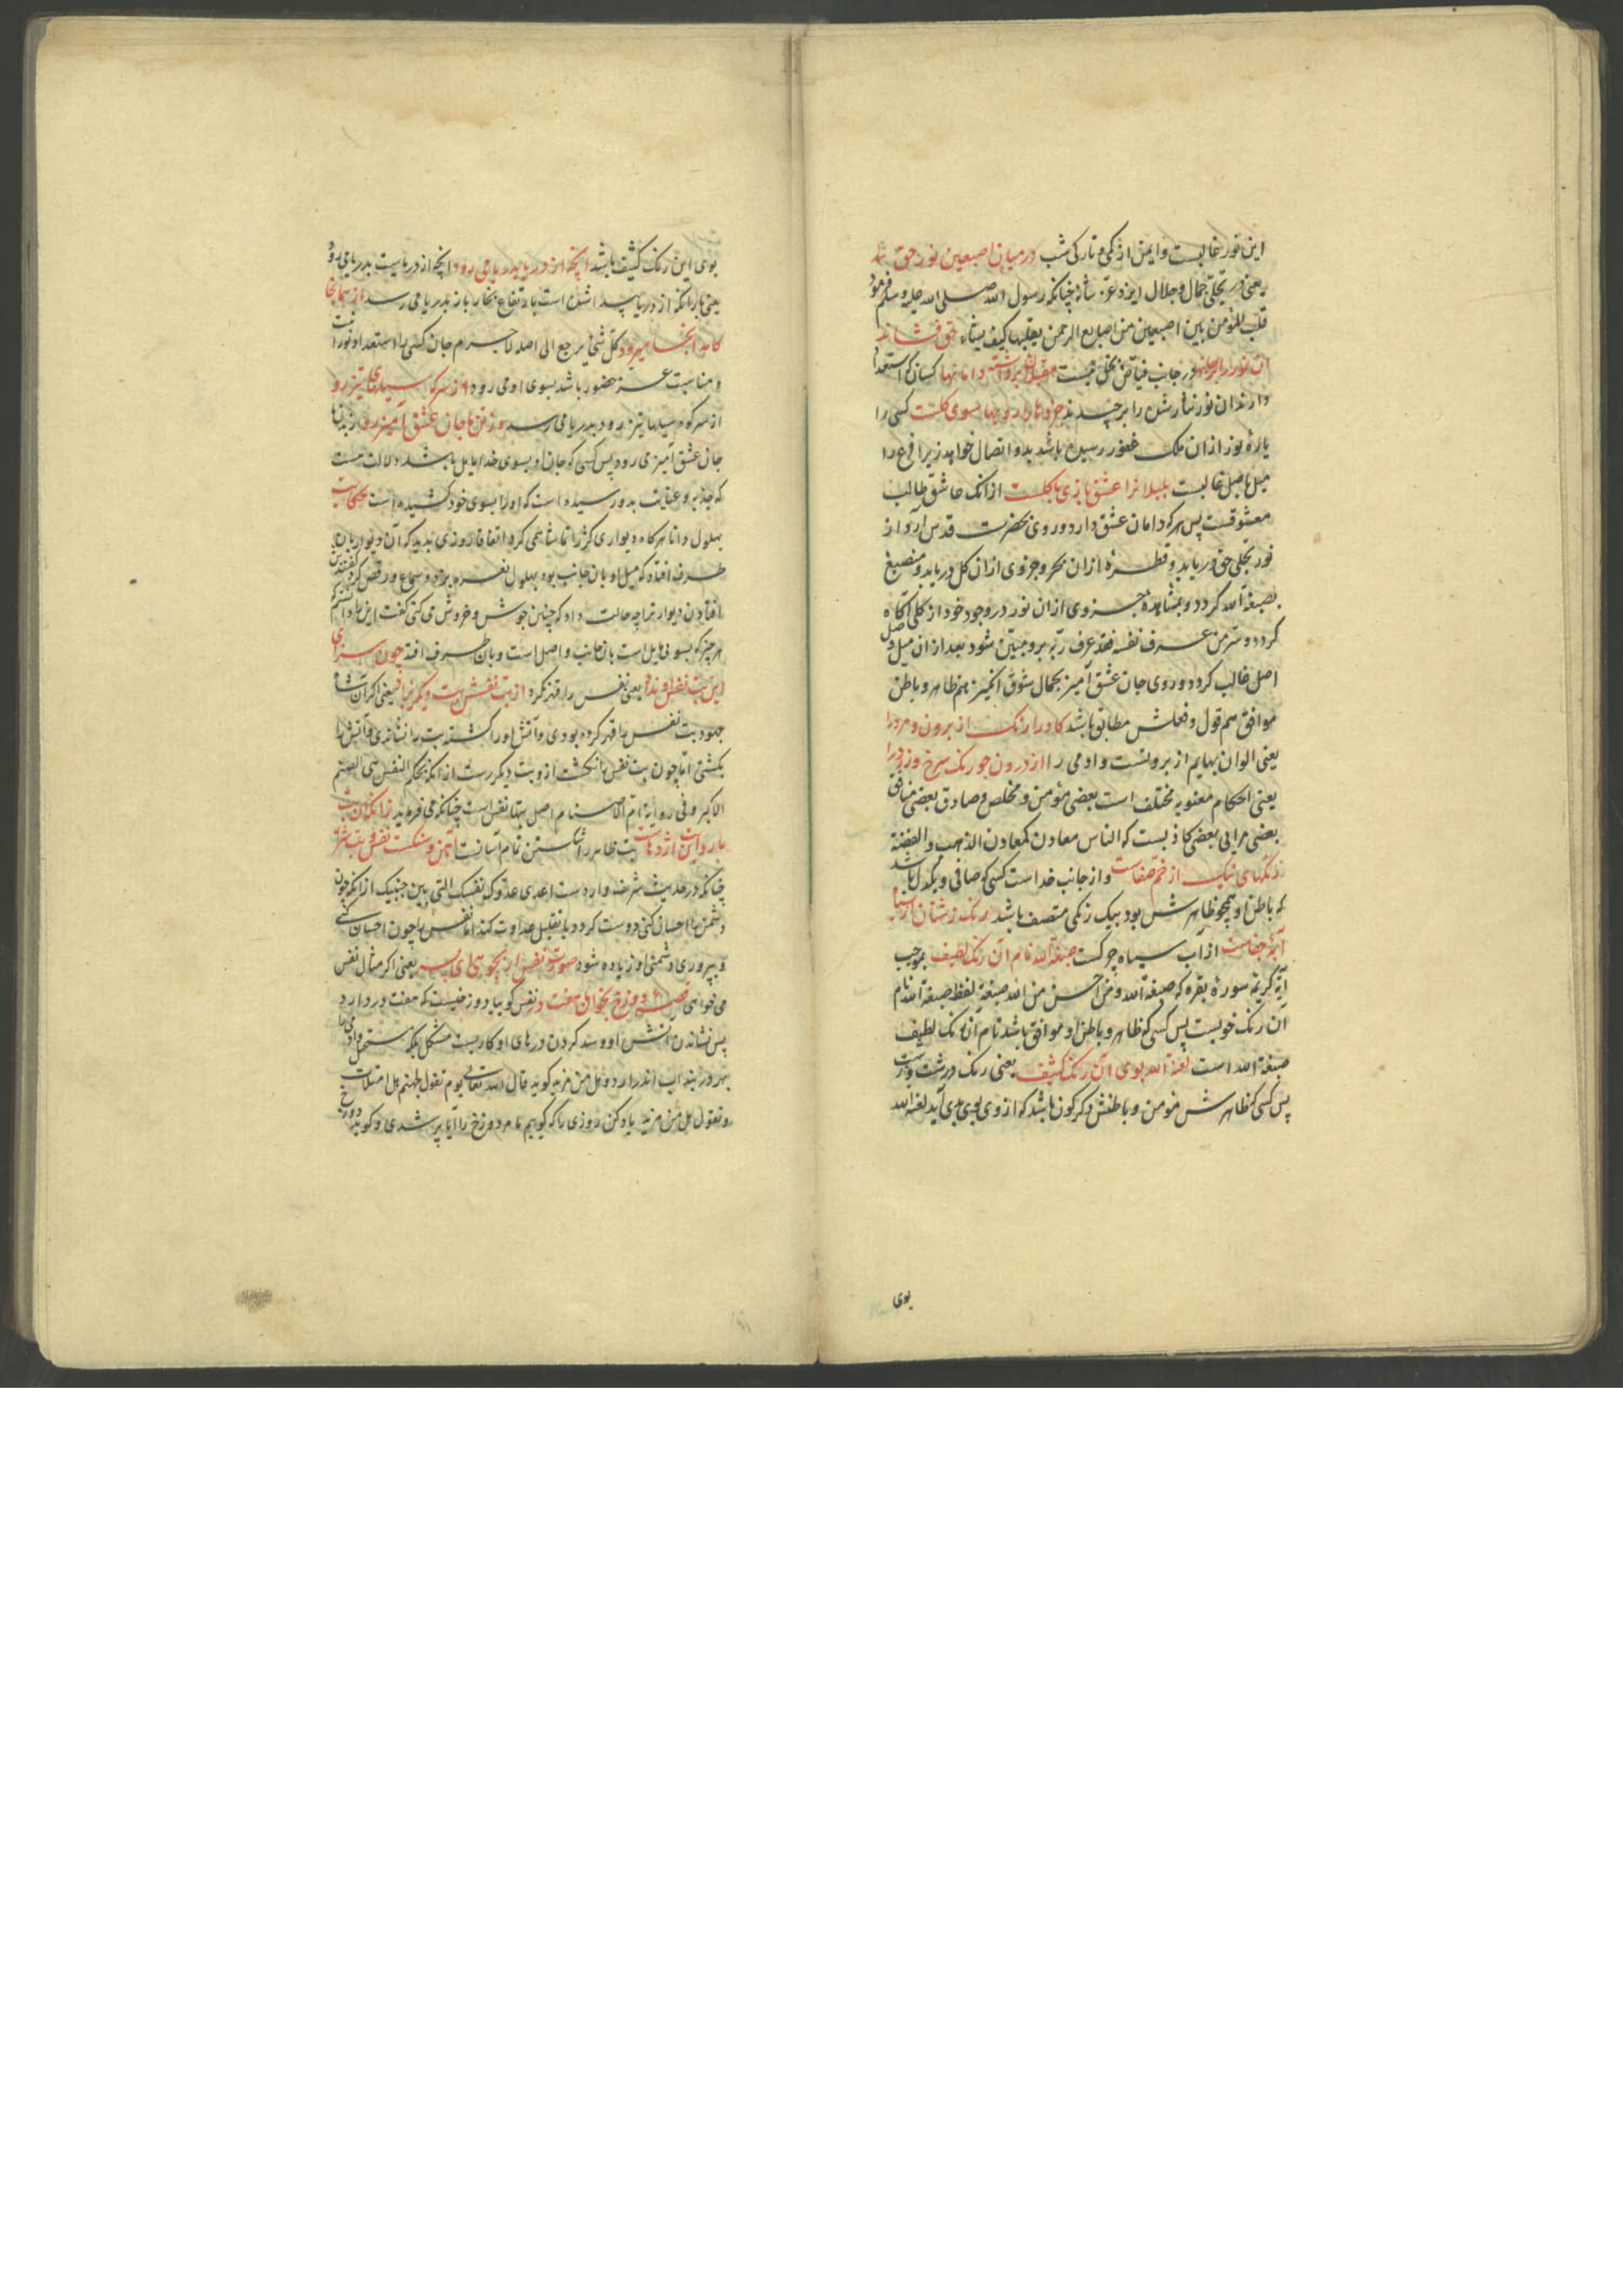 این نور غالبست و ایمن از کمی و تارکی شب در میان اصبعین نور حق
یعنی در تجلی جمال و جلال ایزد عز شأنه چنانکه رسول الله صلی الله علیه وسلم فرمود
قلب المؤمن بین اصبعین من اصابع الرحمن یقلبها کیف یشاء حق فشاند
آن نور را بر جانها در جانب فیاض بخل نیست مقبلان برداشته دامانها کسان که استعداد
دارند آن نور نثار شده را برچیدند جزوها را رویها بسوی کلست کسی را
پارهٔ نوز از ان ملک غفور رسیده باشد بدو اتصال خواهد زیرا فرع را
میل باصل غالبست بلبلانرا عشق بازی با گلست از انک عاشق طالب
معشوقست پس هر که دامان عشق دارد و روی بحضرت قدس آرد از
نور تجلی حق دریابد و قطرهٔ از ان بحر و جزوی از ان کل دریابد و منصبغ
بصبغة الله کردد و بمشاهدهٔ جزوی ازان نور در وجود خود از کلی آگاه
کردد و سر من عرف نفسه فقد عرف ربه برو مبین شود بعد از ان میل و اصل
اصل غالب کردد و روی جان عشق آمیز بجمال شوق انگیز هم ظاهر و باطن
موافق هم قول و فعلش مطابق باشد کاو را رنک از برون و مرد را
یعنی الوان بهایم از برونست و ادمی را از درون جو رنک سرخ و زرد را
یعنی احکام معنویه مختلف است بعضی مؤمن و مخلص و صادق بعضی منافق
بعضی مرایی بعضی کاذبست که الناس معادن کمعادن الذهب والفضة
رنگهای نیک از خم صفاست و از جانب خداست کسی که صافی و یکدل باشد
که باطن او همچو ظاهرش بود بیک رنکی متصف باشد رنک زشتان از سیاه
آبهٔ جفاست از آب سیاه چرکست صبغة الله نام آن رنک لطیف بموجب
آیهٔ کریمه سورهٔ بقره که صبغة الله ومن احسن من الله صبغة لفظ صبغة الله نام
آن رنک خوبست پس کسی که ظاهر و باطن او موافق باشد نام آن رنک لطیف
صبغة الله است لعنة الله بوی آن رنک کثیف یعنی رنک درشت و زشت
پس کسی که ظاهرش مؤمن و باطنش دگرگون باشد که از وی بوی بدی آید لعنة الله
بوی
بوی این رنک کثیف باشد آنچه از دریا بدریا می رود آنچه از دریاست بدریا می رود
یعنی بارانکه از دریا پیدا شده است بارتفاع بخار باز بدریا می رسد از همانجا
کامد انجا میرود کل شیء یرجع الی اصله لاجرم جان کسی را استعداد نور
و مناسبت عز حضور باشد بسوی او می رود از سر که سیلهای تیزرو
از سر کوه سیلها تیز رود و بدریا می رسد وز تن ما جان عشق آمیز رو از بدن ما
جان عشق آمیز می رود پس کسی که جان او بسوی خدا مایل باشد دلالت هست
که جذبه و عنایت بدو رسیده است که او را بسوی خود کشیده است حکایت
بهلول دانا هر کاه دیواری کژ را تماشا می کرد اتفاقا روزی بدید که آن دیوار بان
طرف افتاد که میل او بان جانب بود بهلول نعره بزد و سماع و رقص کرد گفتند
افتادن دیوار ترا چه حالت داد که چنین جوش و خروش می کنی کفت ازین دانستم
هر چیز که بسوئی مایل است بان جانب واصل است و بان طرف افتد چون سزای
این بت نفس او نداد یعنی نفس را قهر نکرد از بت نفسش بت دیگر بزاد یعنی اکر آن شاه
جهود بت نفس را قهر کرده بودی و آتش او را کشته بت را نشاندی و آتش را
بکشتی اما چون بت نفس را نکشت از و بت دیکر رست از انکه بحکم النفس هی الصنم
الاکبر و فی روایة ام الاصنام اصل بتها نفس است چنانکه می فرماید زانکه ان بت
مار و این اژدهاست بت ظاهر را شکستن تمام آسانست آهن و سنکست نفس و بت شرار
چنانکه در حدیث شریف وارد است اعدی عدوک نفسک التی بین جنبیک از انکه چون
دشمن را احسان کنی دوست کردد یا تقلیل عداوت کند اما نفس را چون احسان کنی
و بپروری دشمنی او زیاده شود صورت نفس ار بجویی ای پسر یعنی اکر مثال نفس
می خواهی قصهٔ دوزخ بخوان با هفت در نفس کویا دوزخیست که هفت در دارد
پس نشاندن آتش او و سد کردن درهای او کاریست مشکل بلکه مستحیل
بهر در بند اب اندر ارد و هل من مزید کوید قال الله تعالی یوم نقول لجهنم هل امتلأت
وتقول هل من مزید یاد کن روزی را که کوییم ما مر دوزخ را آیا پر شدی و کوید دوزخ